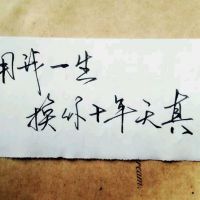 用我一生
换你十年天真